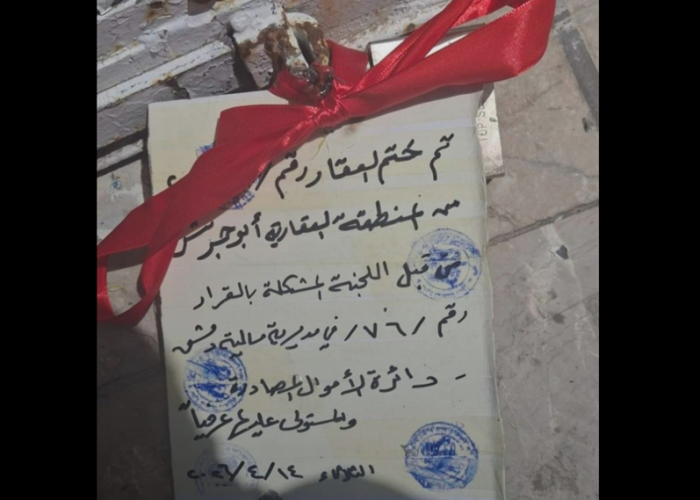 تم ختم العقار رقم /
من المنطقة العقارية أبو جرش
من قبل اللجنة المشكلة بالقرار
رقم /٧٦/ في مديرية مالية دمشق
- دائرة الأموال المصادرة
والمستولى عليها عرفياً
الثلاثاء ٢٠٢٦/٤/١٤
TOP SE